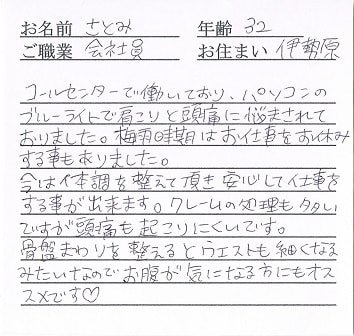 お名前 さとみ 年齢 32
ご職業 会社員 お住まい 伊勢原
コールセンターで働いており、パソコンの
ブルーライトで肩こりと頭痛に悩まされて
おりました。梅雨時期はお仕事をお休み
する事もありました。
今は体調を整えて頂き安心して仕事を
する事が出来ます。クレームの処理も多い
ですが頭痛も起こりにくいです。
骨盤まわりを整えるとウエストも細くなる
みたいなのでお腹が気になる方にもオス
スメです♡